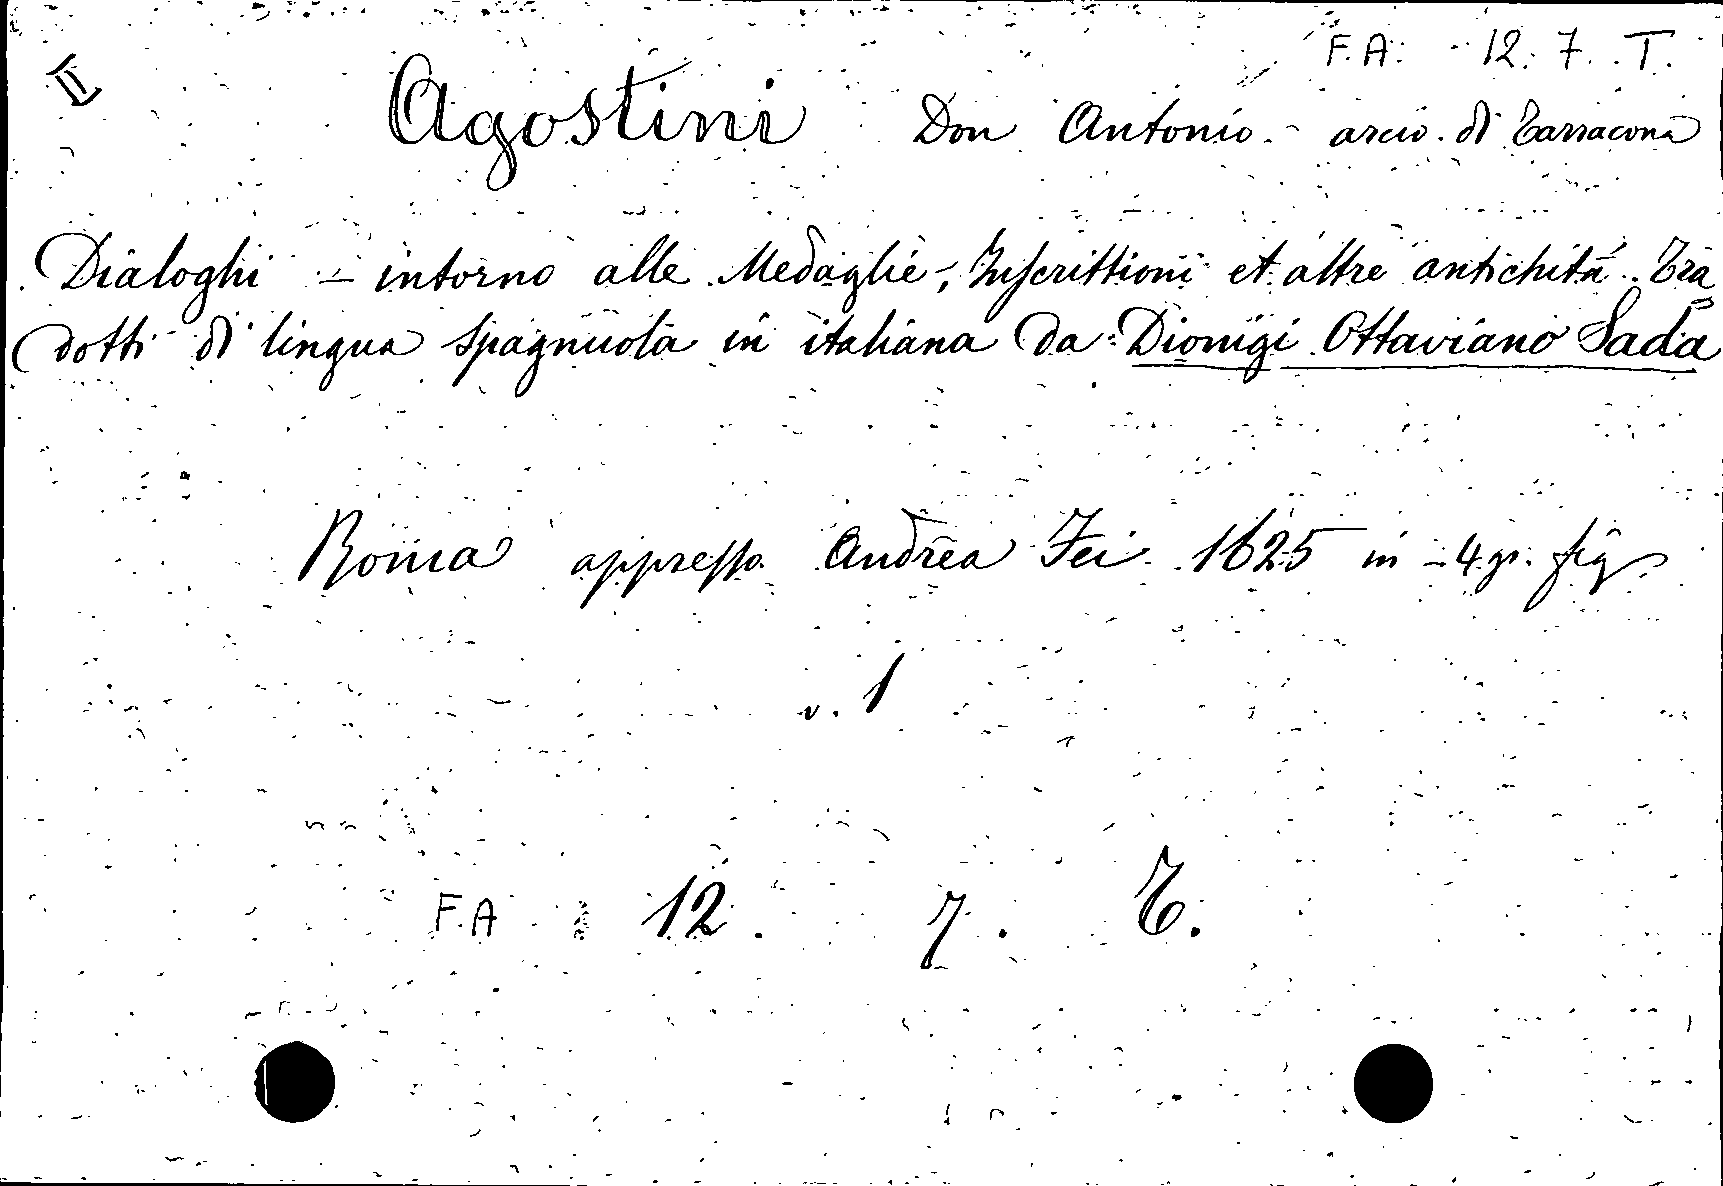 F.A. 12. 7. T.
II
Agostini Don Antonio - arciv. di Tarracona
Dialoghi - intorno alle Medaglie, Inscrittioni et altre antichità. Tra
dotti di lingua spagnuola in italiana da Dionigi Ottaviano Sada
Roma appresso Andrea Fei 1625 in -4 gr. fig
v. 1
F.A 12. 7. T.